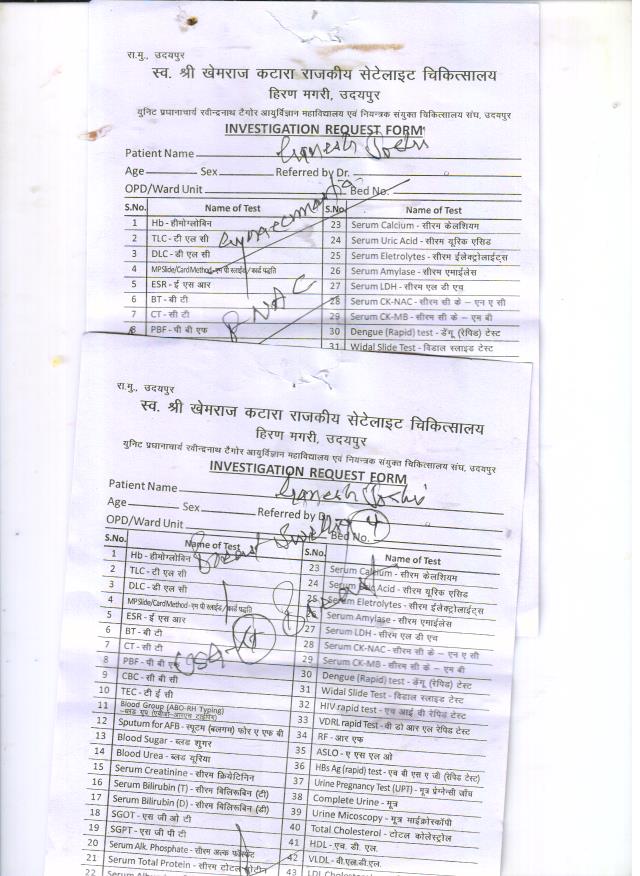 रा.मु., उदयपुर
स्व. श्री खेमराज कटारा राजकीय सेटेलाइट चिकित्सालय
हिरण मगरी, उदयपुर
युनिट प्रधानाचार्य रवीन्द्रनाथ टैगोर आयुर्विज्ञान महाविद्यालय एवं नियन्त्रक संयुक्त चिकित्सालय संघ, उदयपुर
INVESTIGATION REQUEST FORM
Patient Name Ganesh Joshi
Age Sex Referred by Dr.
OPD/Ward Unit Bed No.
S.No. Name of Test S.No. Name of Test
1 Hb - हीमोग्लोबिन 23 Serum Calcium - सीरम केलशियम
2 TLC - टी एल सी 24 Serum Uric Acid - सीरम यूरिक एसिड
3 DLC - डी एल सी 25 Serum Eletrolytes - सीरम ईलेक्ट्रोलाईट्स
4 MP Slide/Card Method - एम पी स्लाईड / कार्ड पद्धति 26 Serum Amylase - सीरम एमाईलेस
5 ESR - ई एस आर 27 Serum LDH - सीरम एल डी एच
6 BT - बी टी 28 Serum CK-NAC - सीरम सी के – एन ए सी
7 CT - सी टी 29 Serum CK-MB - सीरम सी के – एम बी
8 PBF - पी बी एफ 30 Dengue (Rapid) test - डेंगू (रेपिड) टेस्ट
31 Widal Slide Test - विडाल स्लाइड टेस्ट
Gynaecomastia
FNAC
रा.मु., उदयपुर
स्व. श्री खेमराज कटारा राजकीय सेटेलाइट चिकित्सालय
हिरण मगरी, उदयपुर
युनिट प्रधानाचार्य रवीन्द्रनाथ टैगोर आयुर्विज्ञान महाविद्यालय एवं नियन्त्रक संयुक्त चिकित्सालय संघ, उदयपुर
INVESTIGATION REQUEST FORM
Patient Name Ganesh Joshi
Age Sex Referred by Dr.
OPD/Ward Unit Bed No.
Breast Swelling
S.No. Name of Test S.No. Name of Test
1 Hb - हीमोग्लोबिन 23 Serum Calcium - सीरम केलशियम
2 TLC - टी एल सी 24 Serum Uric Acid - सीरम यूरिक एसिड
3 DLC - डी एल सी 25 Serum Eletrolytes - सीरम ईलेक्ट्रोलाईट्स
4 MP Slide/Card Method - एम पी स्लाईड / कार्ड पद्धति 26 Serum Amylase - सीरम एमाईलेस
5 ESR - ई एस आर 27 Serum LDH - सीरम एल डी एच
6 BT - बी टी 28 Serum CK-NAC - सीरम सी के – एन ए सी
7 CT - सी टी 29 Serum CK-MB - सीरम सी के – एम बी
8 PBF - पी बी एफ 30 Dengue (Rapid) test - डेंगू (रेपिड) टेस्ट
9 CBC - सी बी सी 31 Widal Slide Test - विडाल स्लाइड टेस्ट
10 TEC - टी ई सी 32 HIV rapid test - एच आई वी रेपिड टेस्ट
11 Blood Group (ABO-RH Typing) 33 VDRL rapid Test - वी डी आर एल रेपिड टेस्ट
12 Sputum for AFB - स्पूटम (बलगम) फोर ए एफ बी 34 RF - आर एफ
13 Blood Sugar - ब्लड शुगर 35 ASLO - ए एस एल ओ
14 Blood Urea - ब्लड यूरिया 36 HBs Ag (rapid) test - एच बी एस ए जी (रेपिड टेस्ट)
15 Serum Creatinine - सीरम क्रियेटिनिन 37 Urine Pregnancy Test (UPT) - मूत्र प्रेग्नेन्सी जाँच
16 Serum Bilirubin (T) - सीरम बिलिरूबिन (टी) 38 Complete Urine - मूत्र
17 Serum Bilirubin (D) - सीरम बिलिरूबिन (डी) 39 Urine Microscopy - मूत्र माईक्रोस्कॉपी
18 SGOT - एस जी ओ टी 40 Total Cholesterol - टोटल कोलेस्ट्रोल
19 SGPT - एस जी पी टी 41 HDL - एच. डी. एल.
20 Serum Alk. Phosphate - सीरम अल्क फोस्फेट 42 VLDL - वी.एल.डी.एल.
21 Serum Total Protein - सीरम टोटल प्रोटीन 43
22